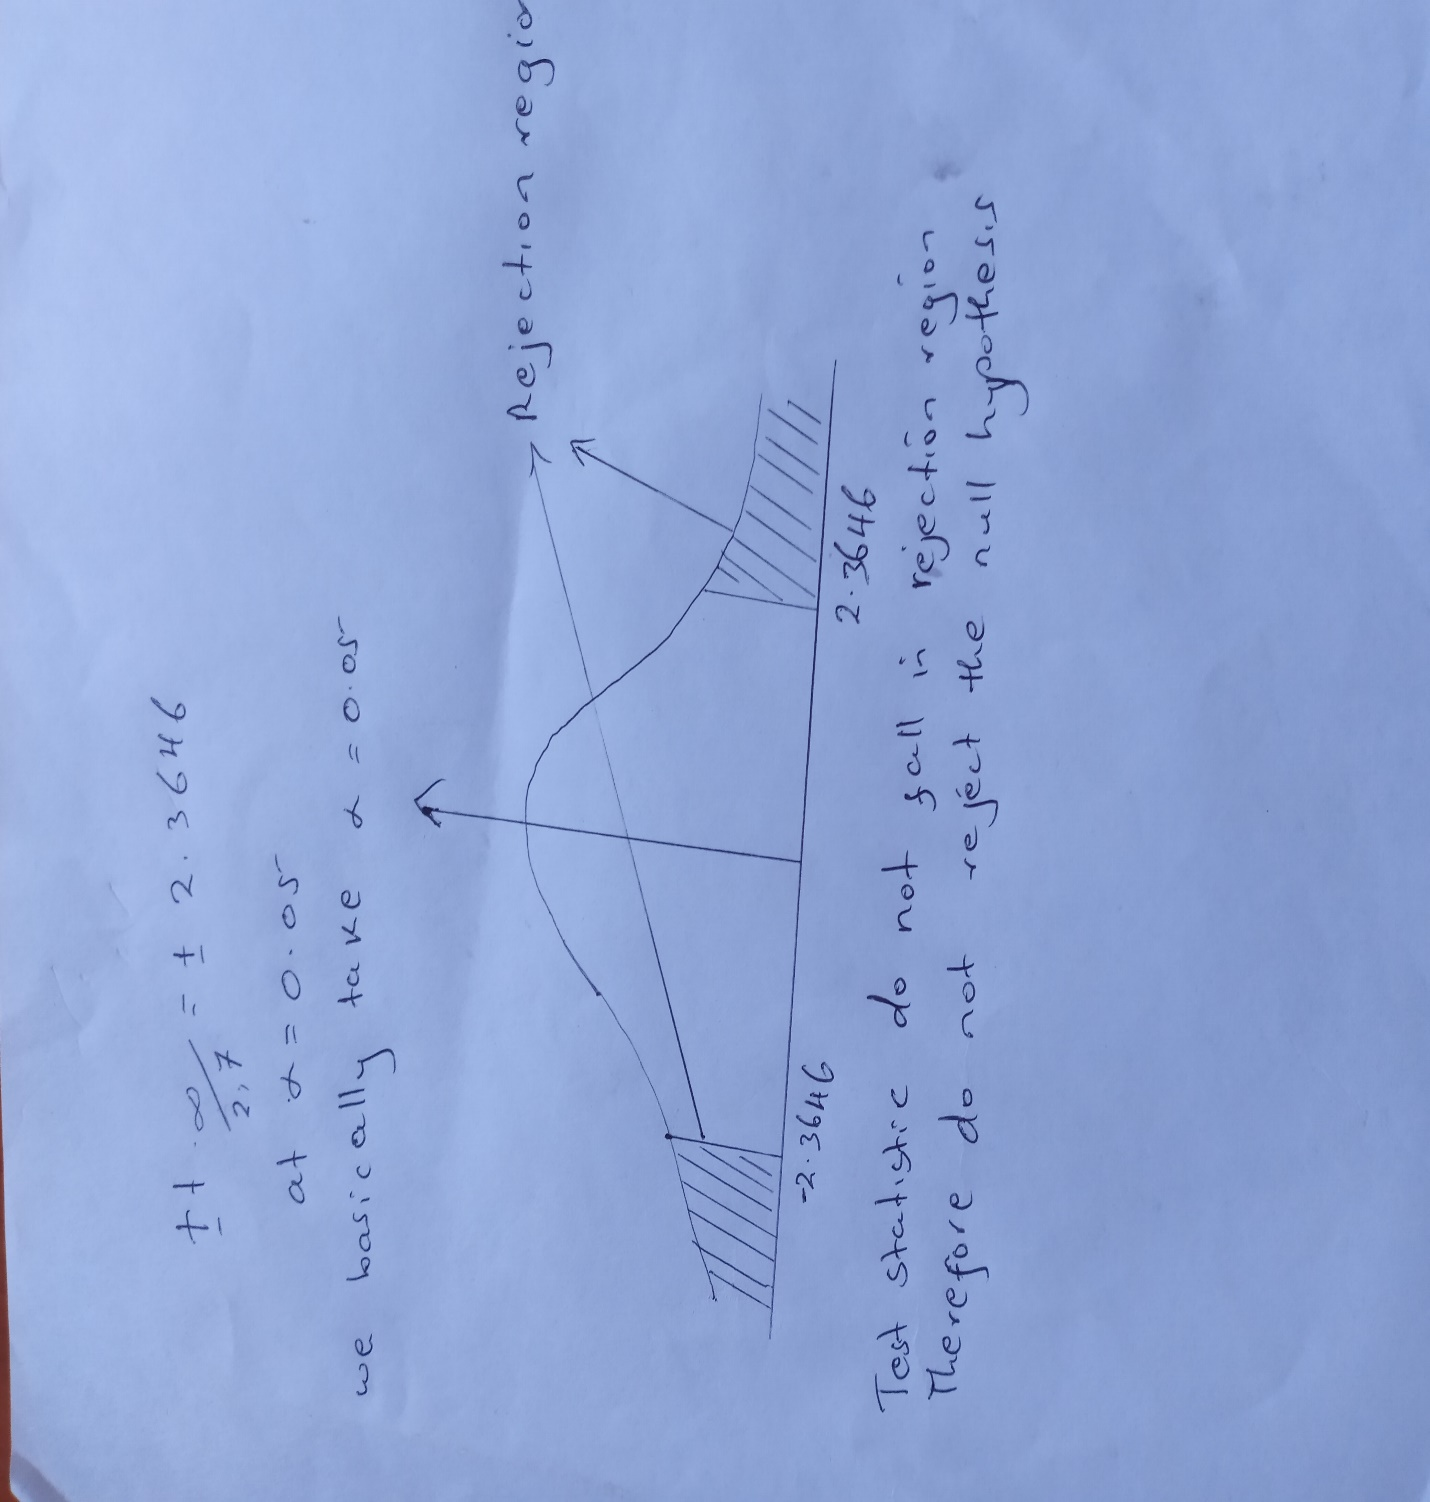 ± t ∝/2,7 = ± 2.3646
at α = 0.05
we basically take α = 0.05
Rejection regio
-2.3646
2.3646
Test statistic do not fall in rejection region
Therefore do not reject the null hypothesis